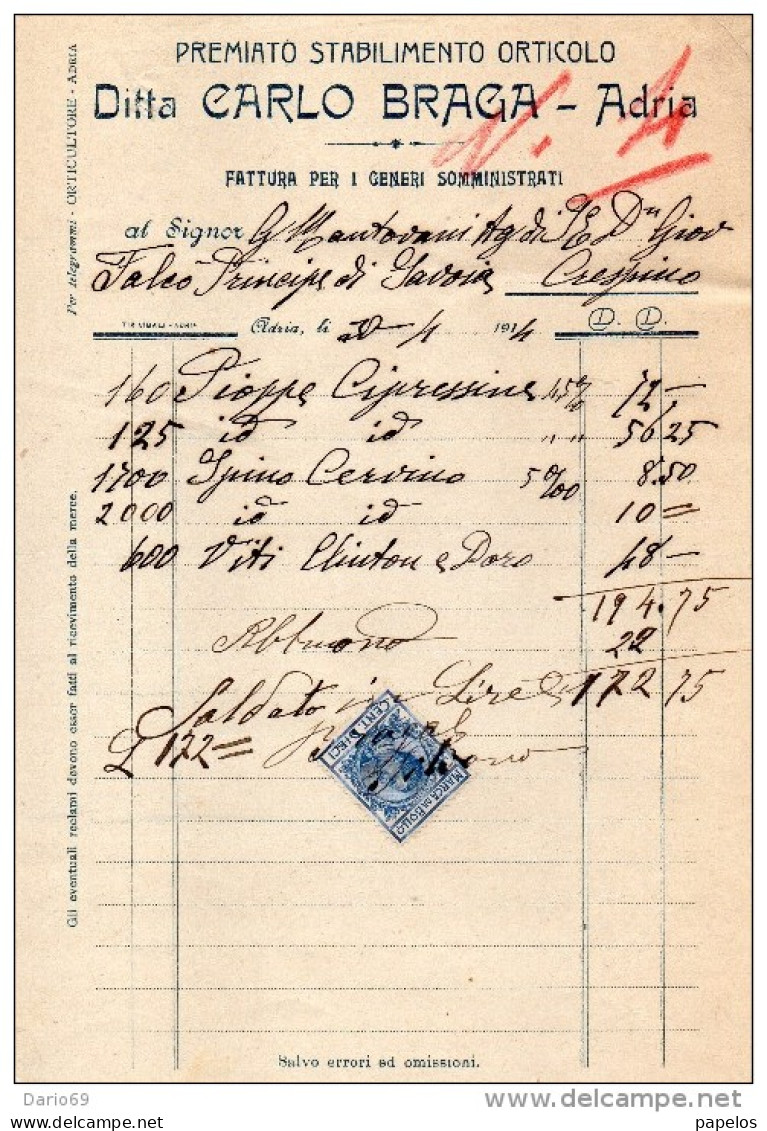 PREMIATO STABILIMENTO ORTICOLO
Ditta CARLO BRAGA - Adria
N. 4
FATTURA PER I GENERI SOMMINISTRATI
al Signor G Mantovani Ag di S E Dn Giov
Falcò Principe di Savoia Crespino
Adria, li 20-4 1914 D. D.
160 Pioppe Cipressine 45% 72-
125 id id " " 56 25
1700 Spino Cervino 5 0/00 8.50
2000 id id 10=
600 Viti Clinton e Doro 48-
194.75
Abbuono 22
Saldato in Lire 172 75
£ 172=
CENT. DIECI
MARCA DA BOLLO
Salvo errori ed omissioni.
Per telegrammi - ORTICULTORE - ADRIA
Gli eventuali reclami devono esser fatti al ricevimento della merce.
Dario69
www.delcampe.net
papelos